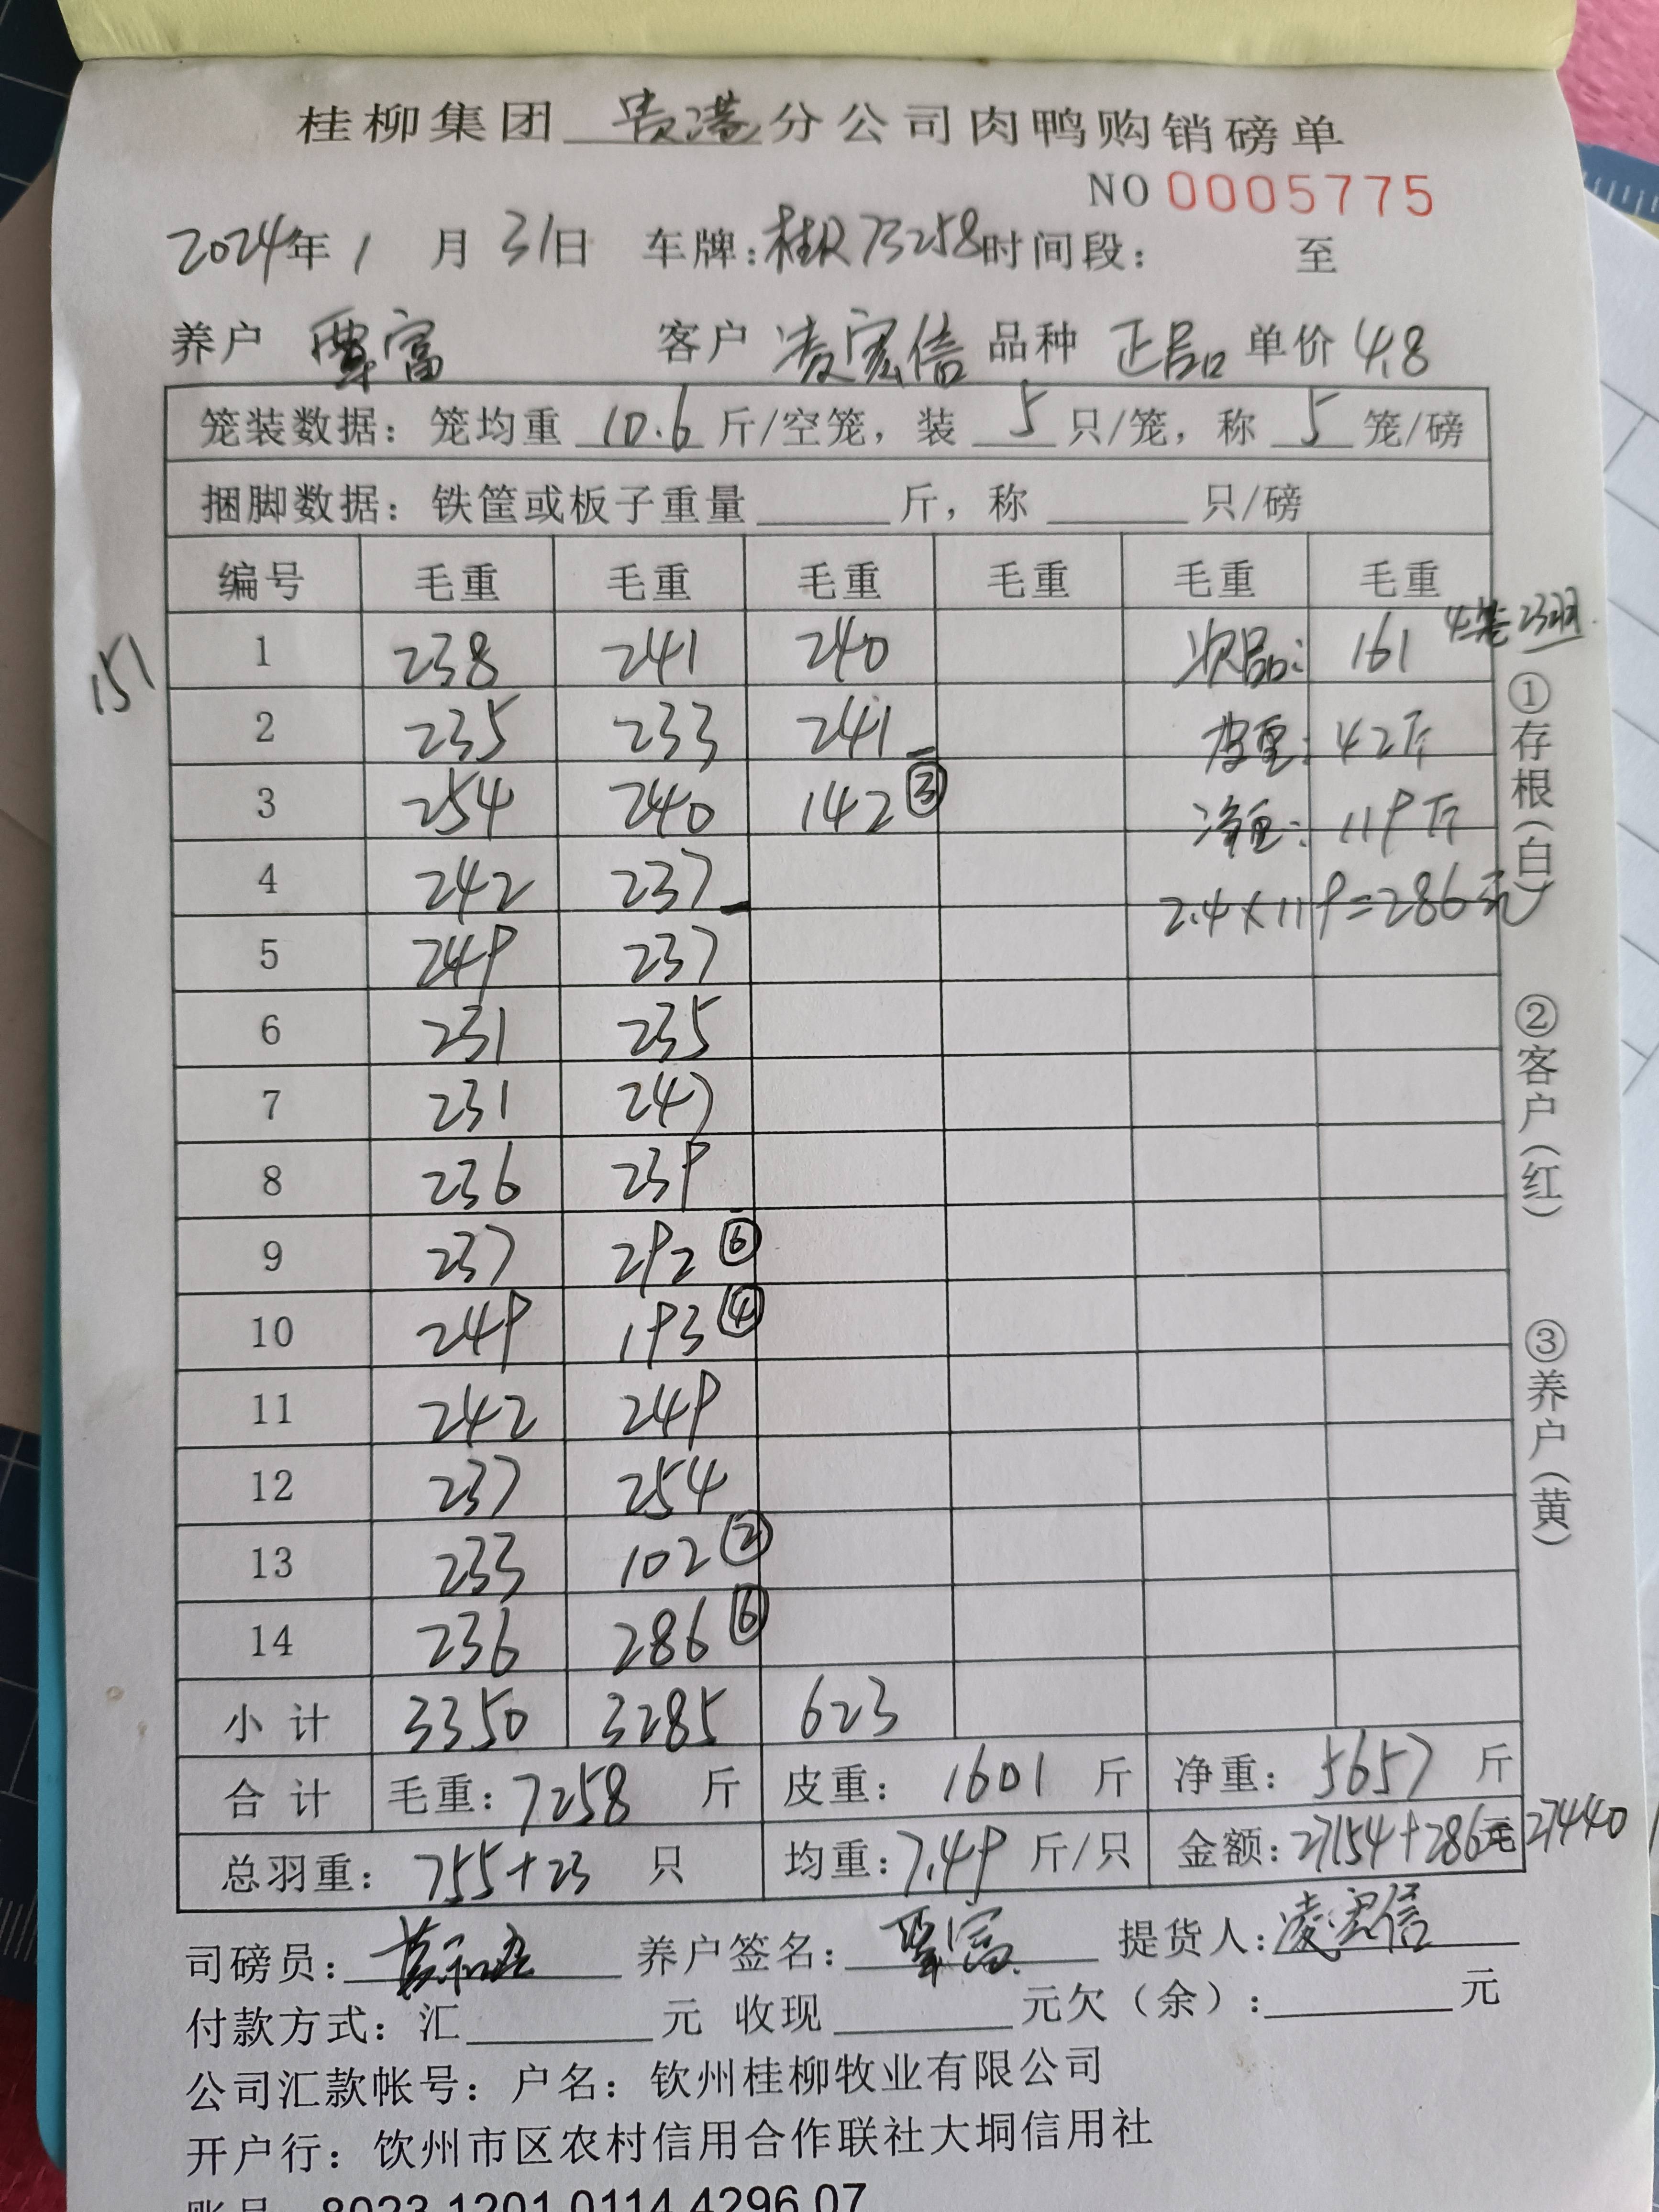 桂柳集团 贵港 分公司肉鸭购销磅单
NO 0005775
2024年 1 月 31日 车牌:桂R73258 时间段: 至
养户 覃富 客户 凌宏信 品种 正品 单价 4.8
笼装数据: 笼均重 10.6 斤/空笼, 装 5 只/笼, 称 5 笼/磅
捆脚数据: 铁筐或板子重量 斤, 称 只/磅
编号 毛重 毛重 毛重 毛重 毛重 毛重
4笼 23羽
151
1 238 241 240 次品: 161
2 235 233 241 皮重: 42斤
3 254 240 142 ③ 净重: 119斤
4 242 237 2.4×119=286元
5 249 237
6 231 235
7 231 247
8 236 239
9 237 292 ⑥
10 249 193 ④
11 242 249
12 237 254
13 233 102 ②
14 236 286 ⑥
小计 3350 3285 623
合计 毛重: 7258 斤 皮重: 1601 斤 净重: 5657 斤
总羽重: 755+23 只 均重: 7.49 斤/只 金额: 27154+286元 27440
司磅员: 养户签名: 覃富 提货人: 凌宏信
付款方式: 汇 元 收现 元欠(余): 元
公司汇款帐号: 户名: 钦州桂柳牧业有限公司
开户行: 钦州市区农村信用合作联社大垌信用社
账号 8023 1201 0114 4296 07
①存根(白)
②客户(红)
③养户(黄)